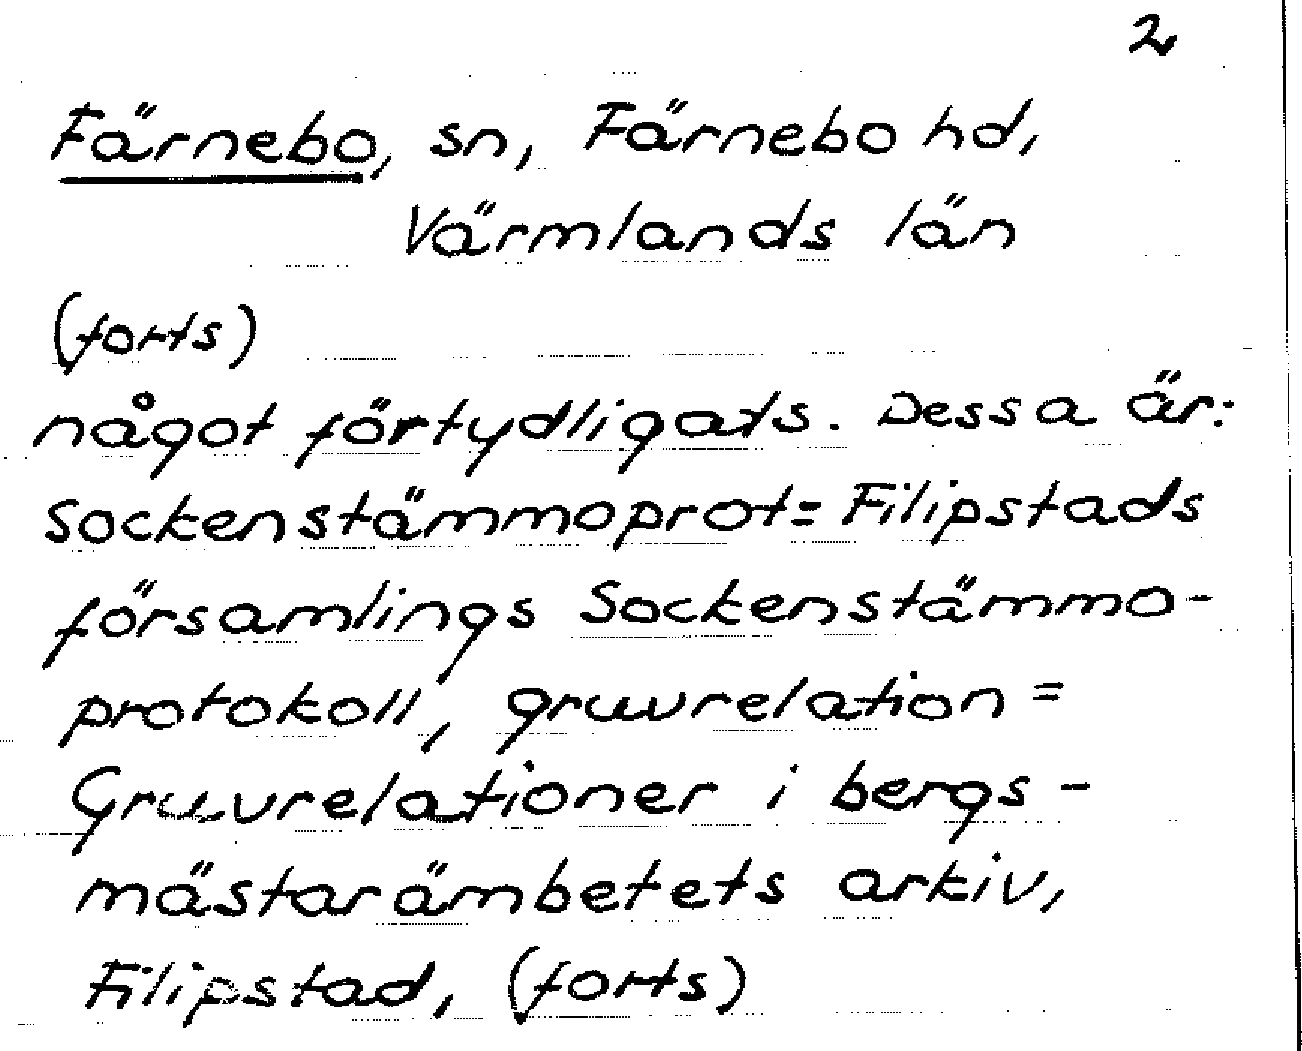 2
Färnebo, sn, Färnebo hd,
Värmlands län
(forts)
något förtydligats. Dessa är:
Sockenstämmoprot= Filipstads
församlings Sockenstämmo-
protokoll, gruvrelation =
Gruvrelationer i bergs-
mästarämbetets arkiv,
Filipstad, (forts)